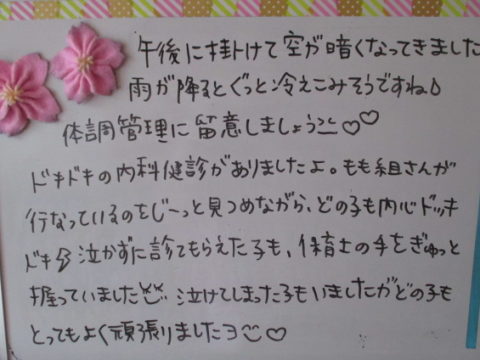 午後に掛けて空が暗くなってきました
雨が降るとぐっと冷えこみそうですね
体調管理に留意しましょう
ドキドキの内科健診がありましたよ。もも組さんが
行なっているのをじーっと見つめながら、どの子も内心ドッキ
ドキ 泣かずに診てもらえた子も、保育士の手をぎゅっと
握っていました 泣けてしまった子もいましたがどの子も
とってもよく頑張りましたヨ